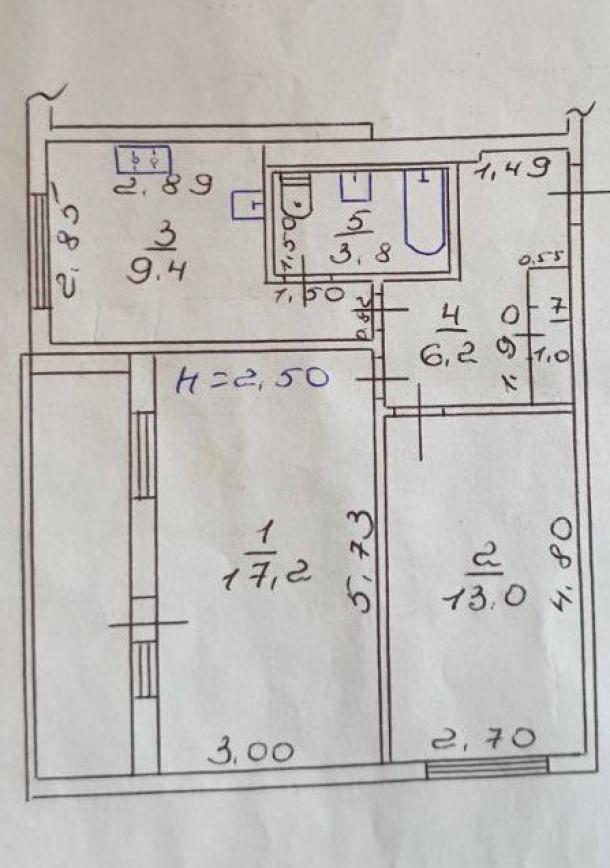 1,49
2.89
2.85
3
9.4
1,50
5
3.8
1,50
0.82
0.55
4
6,2
7
1,0
H=2,50
1
17,2
5,73
2
13.0
4.80
3.00
2,70